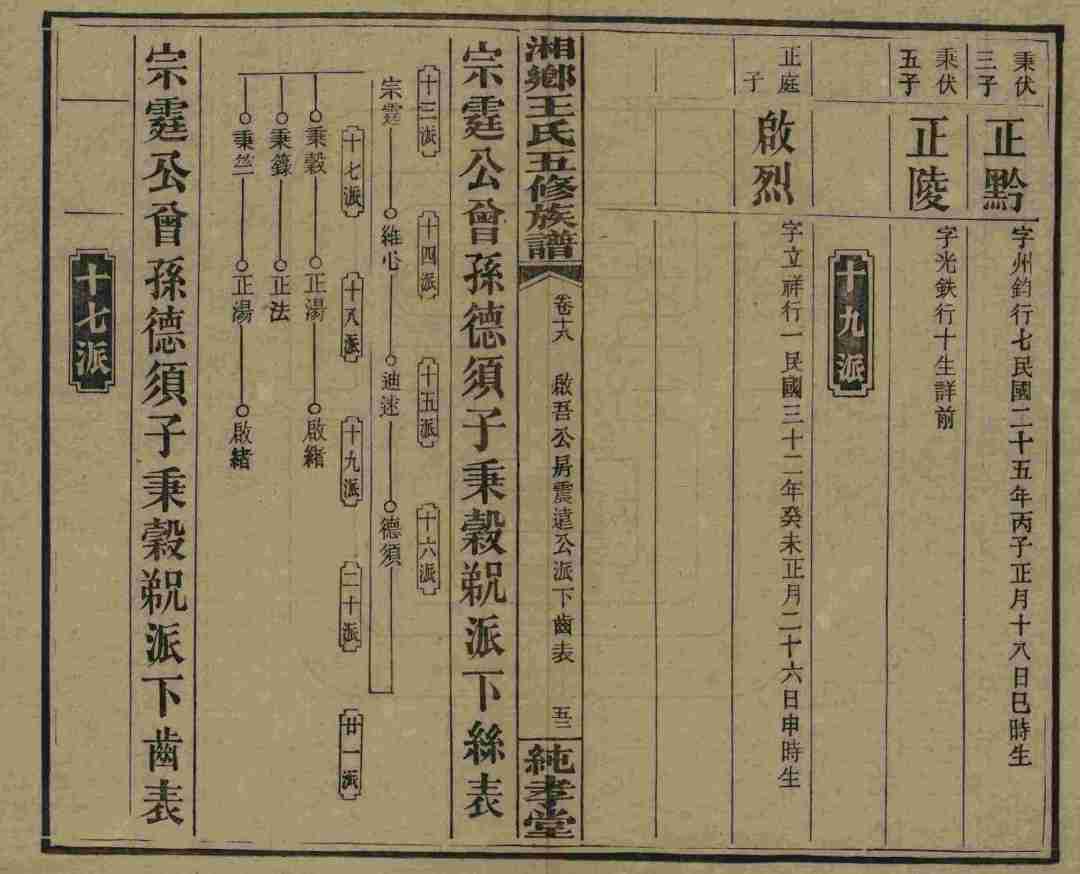 秉伏三子
正黔
字州鈞行七民國二十五年丙子正月十八日巳時生
秉伏五子
正陵
字光鉄行十生詳前
十九派
正庭子
啟烈
字立祥行一民國三十二年癸未正月二十六日申時生
湘鄉王氏五修族譜
卷十六
啟吾公房震遠公派下齒表
五二
純孝堂
宗霆公曾孫德須子秉穀粥派下絲表
十三派
十四派
十五派
十六派
宗霆
維心
迪迷
德須
十七派
十八派
十九派
二十派
廿一派
秉穀
正湯
啟緒
秉籙
正法
秉竺
正湯
啟緒
宗霆公曾孫德須子秉穀派下齒表
十七派